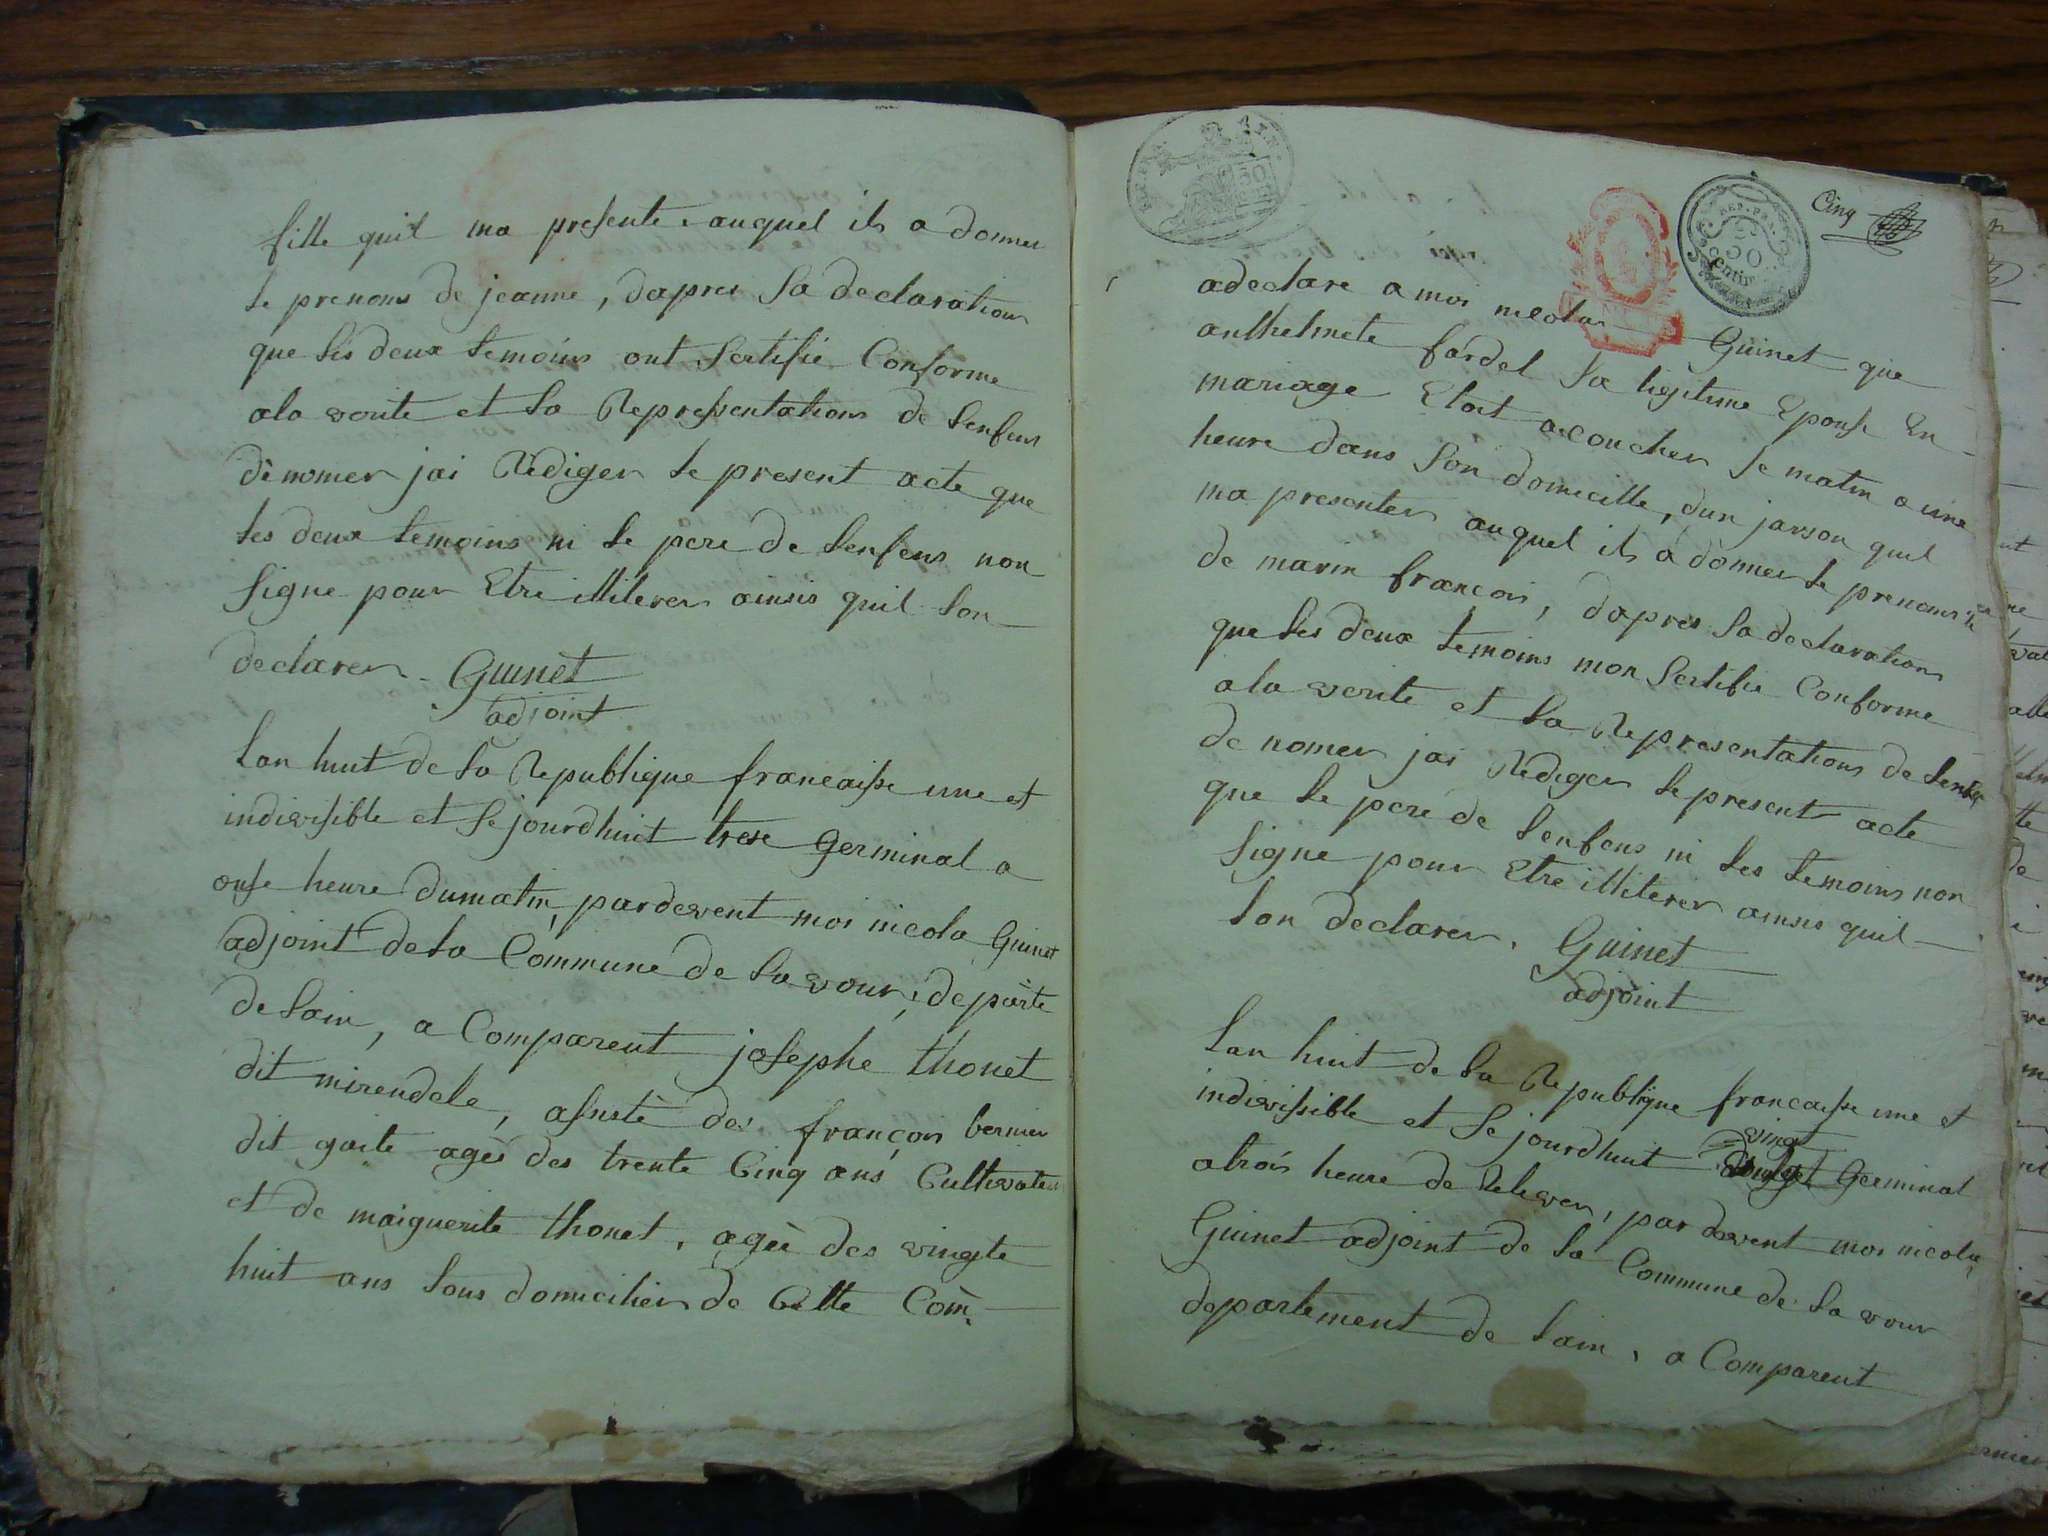 fille quil ma presente auquel ils a donner
le prenoms de jeanne, dapres sa declaration
que les deux temoins ont sertifié Conforme
ala verite et la Representations de lenfens
dénomer jai Rédiger le present acte que
les deux temoins ni le pere de lenfens non
signe pour Etre illiterer ainsis quil lon
declarer. Guinet
adjoint
Lan huit de la Republique francaisse une et
indivisible et se jourdhuit trese Germinal a
onse heure dumatin, pardevent moi nicola Guinet
adjoint de la Commune de la vour, departe
de lain, a Comparent josephe thonet
dit mirendele, asusté des françois bernier
dit gaite ageé des trente Cinq ans Cultivateur
et de maiguerite thonet, ageé des vingte
huit ans tous domicilier de Cette Com.
Cinq
REP. FRA.
50
Centimes
adeclare a moi nicola Guinet que
anthelmete fardel sa legitime Epouse En
mariage Etoit acoucher se matin a une
heure dans son domicille, dun jarson quil
ma presenter auquel ils a donner le prenoms
de marin francois, dapres sa declaration
que les deux temoins mon sertifie Conforme
ala verite et la Representations de lenfens
de nomer jai Rediger le present acte
que le pere de lenfens ni les temoins non
signe pour Etre illiterer ainsis quil
lon declarer. Guinet
adjoint
Lan huit de la Republique francaisse une et
indivissible et se jourdhuit vingt Germinal
atrois heure de Relever, par devent moi nicola
Guinet adjoint de la Commune de la vour
departement de lain, a Comparent